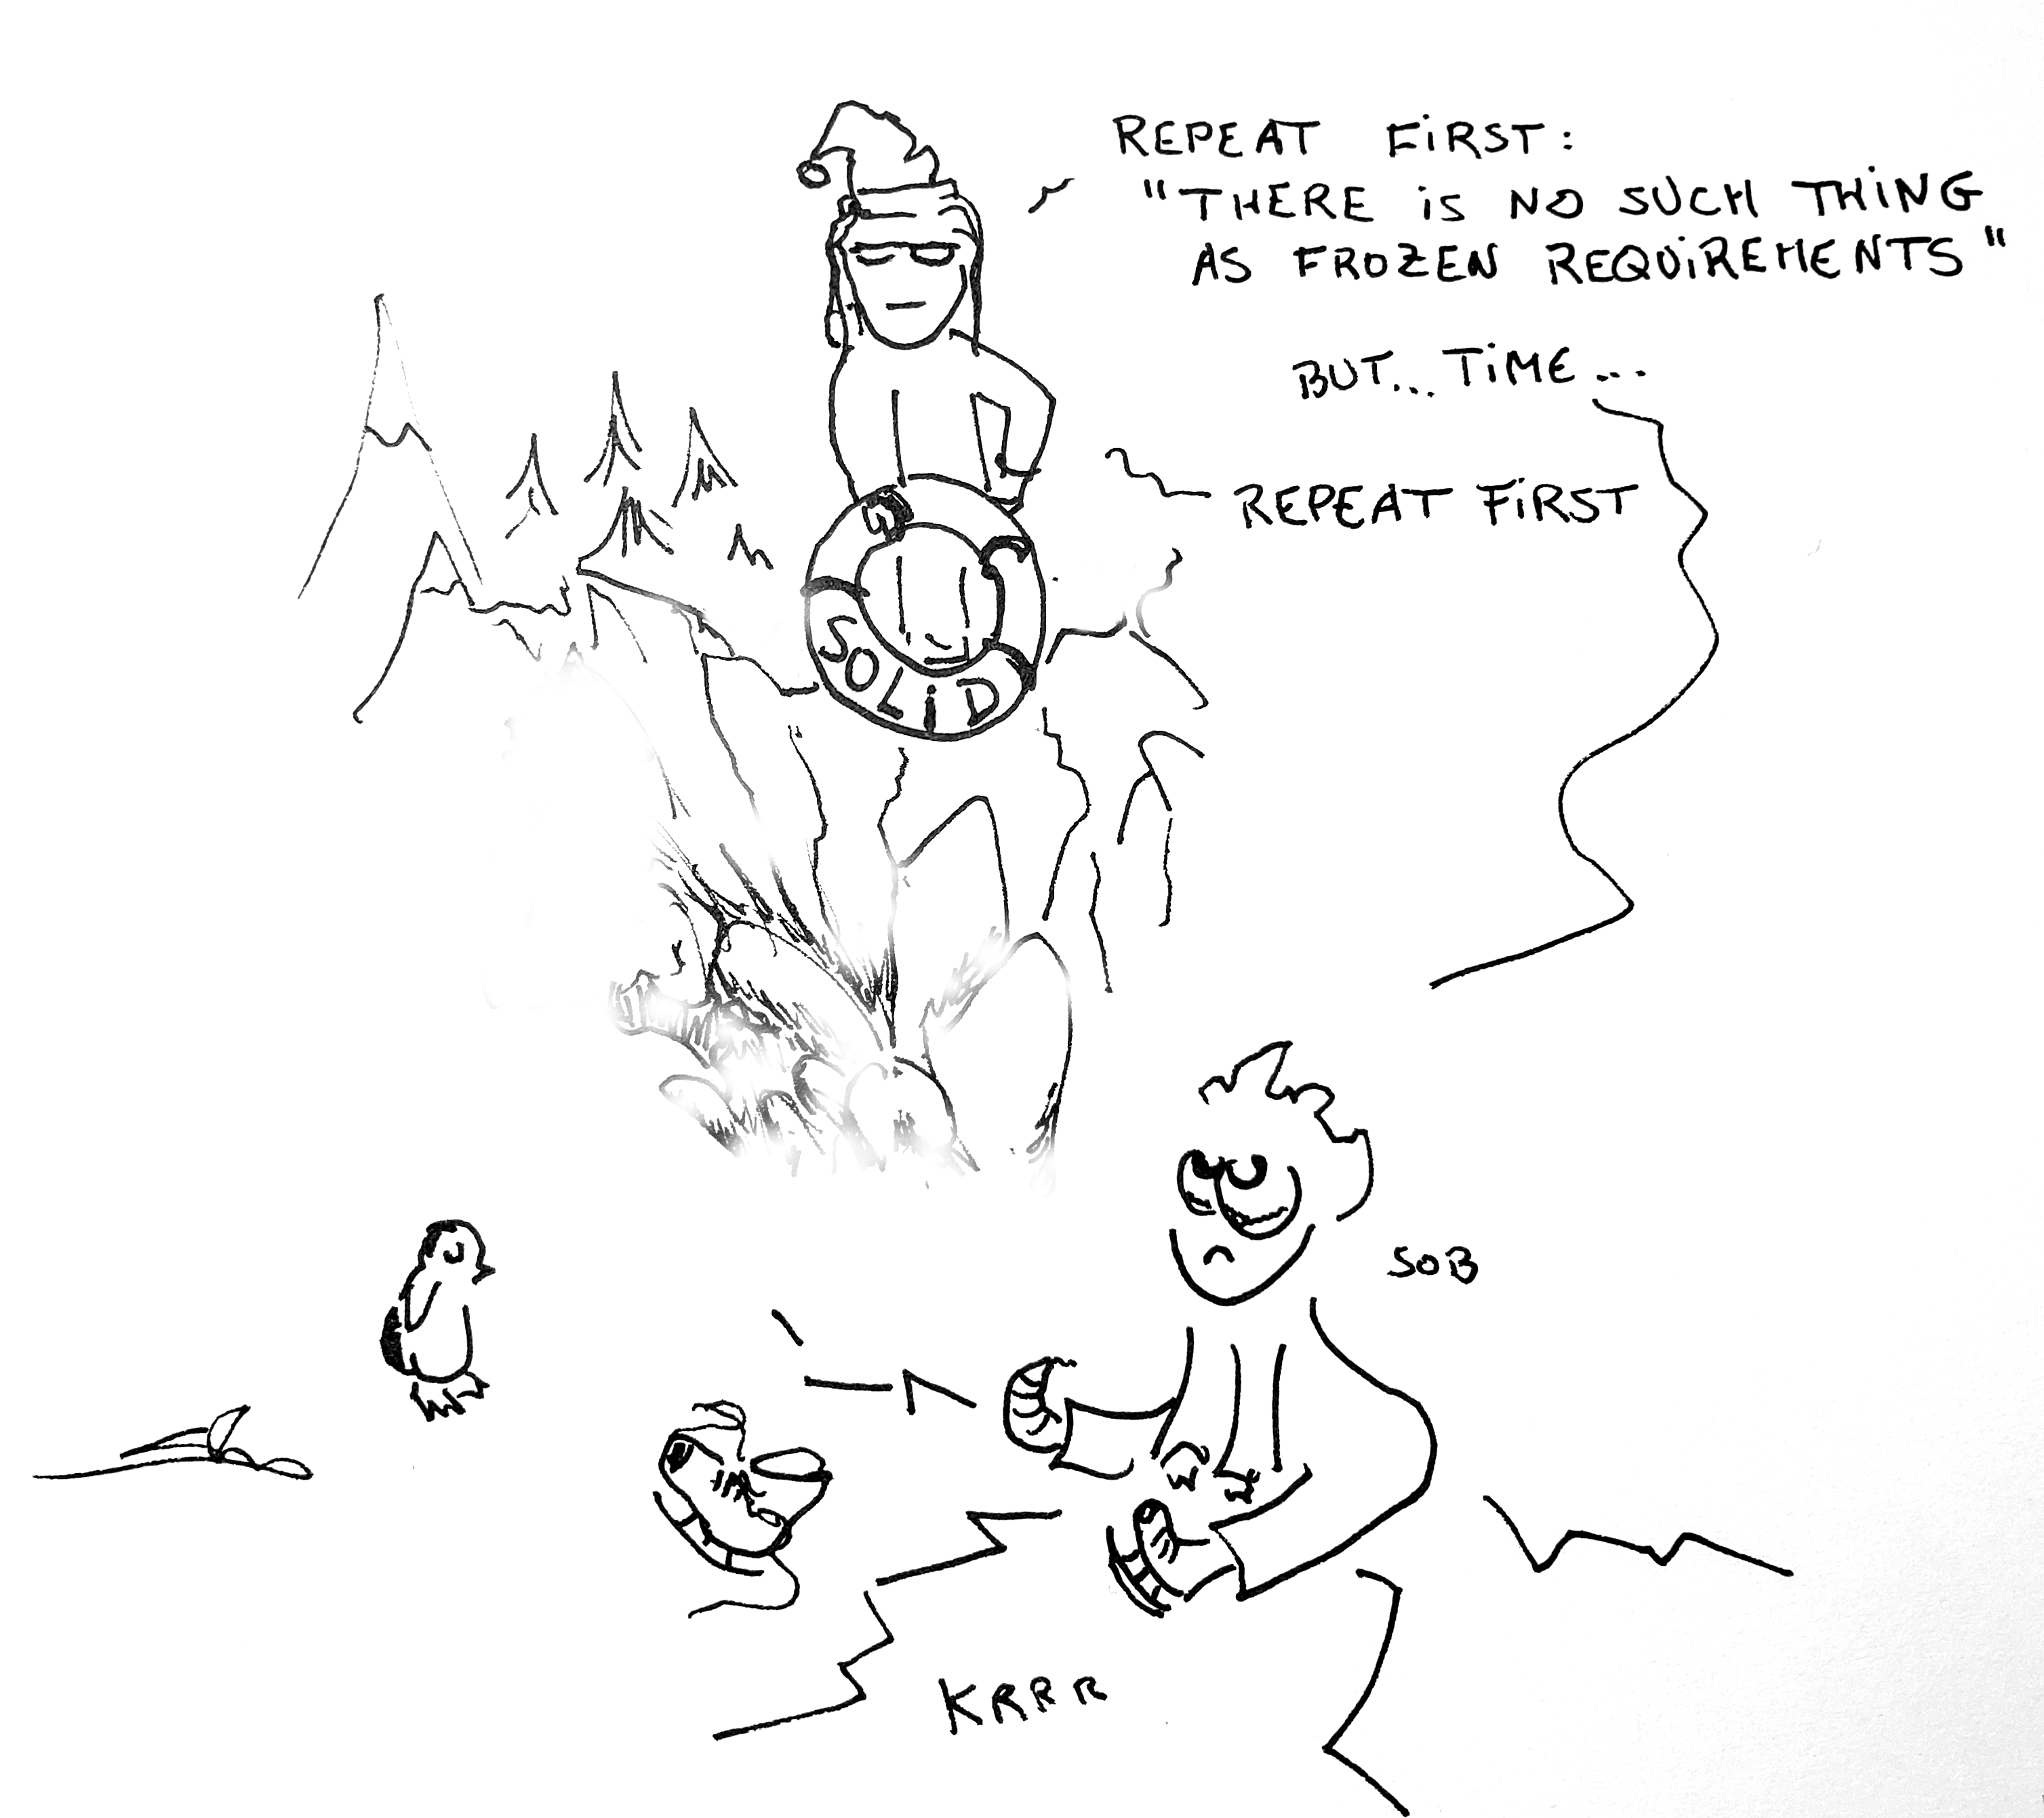 REPEAT FIRST:
"THERE IS NO SUCH THING
AS FROZEN REQUIREMENTS"
BUT... TIME...
REPEAT FIRST
SOLID
SOB
KRRR